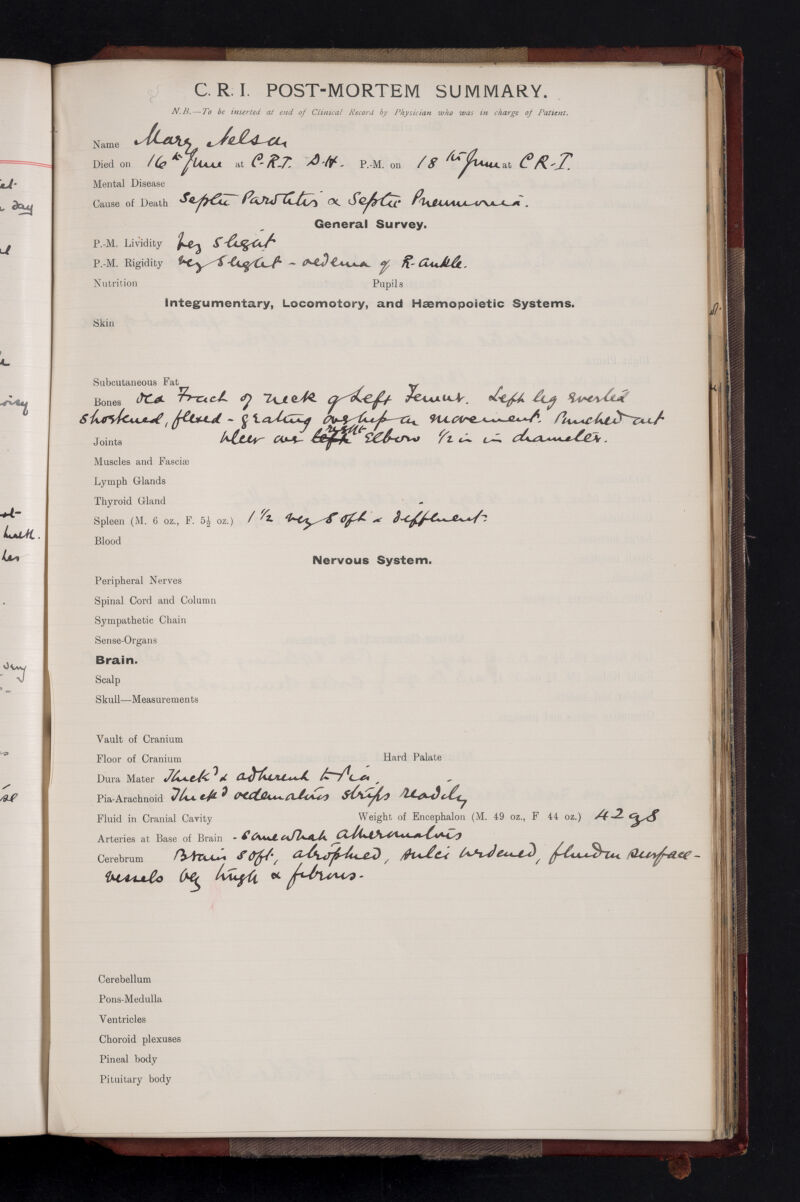 C. R. I. POST-MORTEM SUMMARY.
N.B.—To be inserted at end of Clinical Record by Physician who was in charge of Patient.
Name Mary Nelson
Died on 16th June at C.R.I. P.-M. on 18th June at C R-I.
Mental Disease
Cause of Death Septic Parotitis & Septic Pneumonia.
General Survey.
P.-M. Lividity Very slight
P.-M. Rigidity Very slight - oedema of R. ankle.
Nutrition Pupils
Integumentary, Locomotory, and Hæmopoietic Systems.
Skin
Subcutaneous Fat
Bones Old Fract of neck of Left Femur. Left leg everted
shortened, flexed - grating over hip on movement. Punched out
Joints ulcer over left right Elbow ½ in in diameter.
Muscles and Fasciæ
Lymph Glands
Thyroid Gland
Spleen (M. 6 oz., F. 5½ oz.) 1½ very soft & diffluent.
Blood
Nervous System.
Peripheral Nerves
Spinal Cord and Column
Sympathetic Chain
Sense-Organs
Brain.
Scalp
Skull—Measurements
Vault of Cranium
Floor of Cranium Hard Palate
Dura Mater Thick'd & adherent to Pia
Pia-Arachnoid Thick'd oedematous strips readily
Fluid in Cranial Cavity Weight of Encephalon (M. 49 oz., F 44 oz.) 42 ozs
Arteries at Base of Brain - somewhat atheromatous
Cerebrum Brain soft, atrophied, sulci widened, fluid on surface-
vessels very tough & fibrous.
Cerebellum
Pons-Medulla
Ventricles
Choroid plexuses
Pineal body
Pituitary body